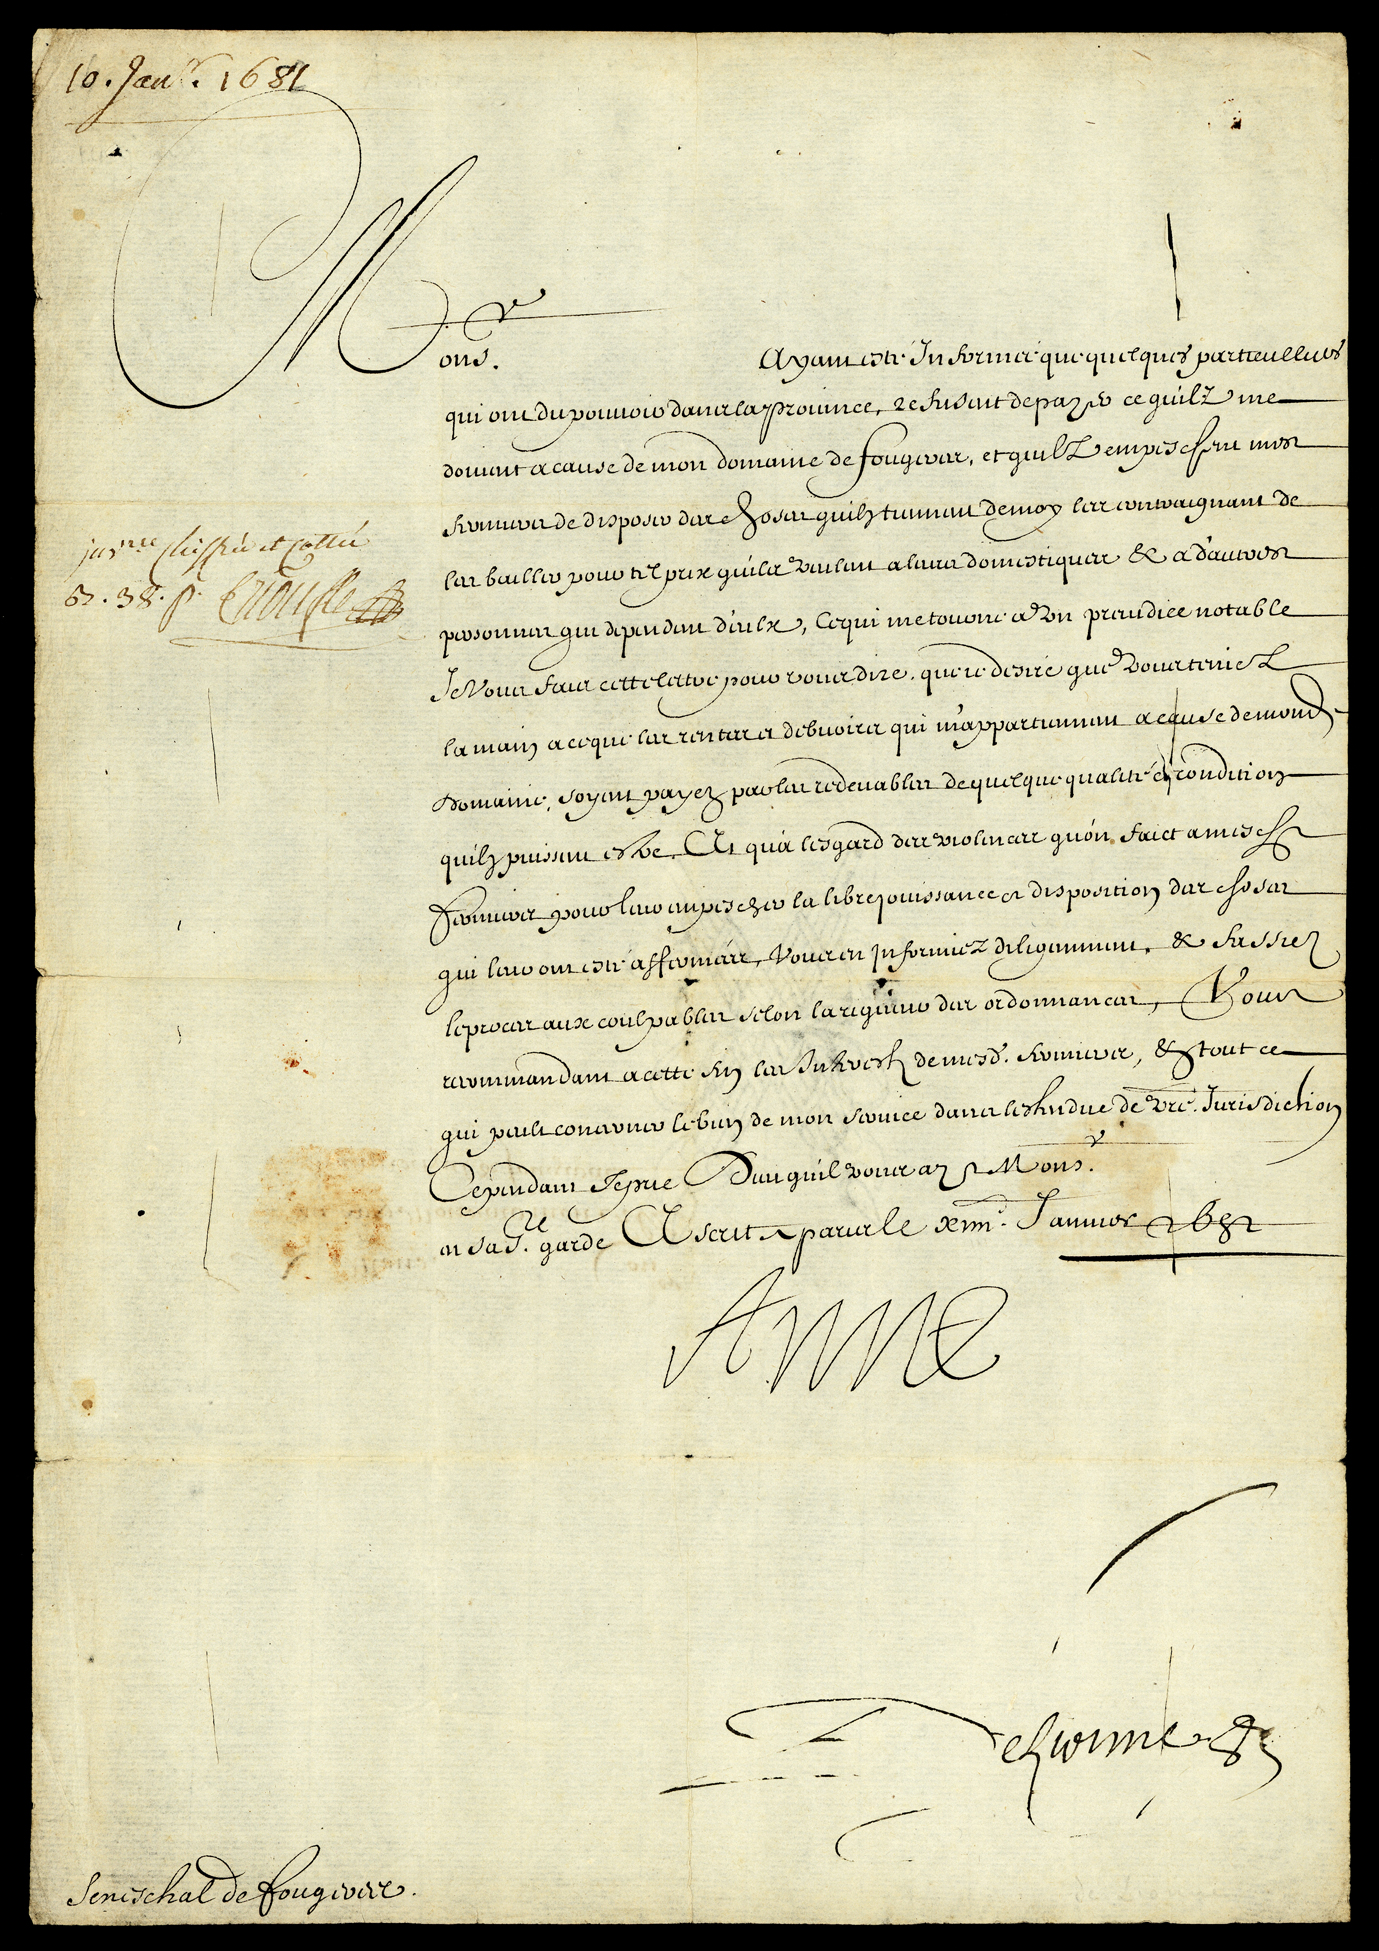 10. Janr. 1681
Monsr. Ayant esté Informée que quelques particulliers
qui ont du pouvoir dans la province, refusent de payer ce quilz me
doivent a cause de mon domaine de fougeres, et quilz empeschent mes
fermiers de disposer des choses quilz tiennent de moy les contraignant de
les bailler pour tel prix quils veulent a leurs domestiques & a d'autres
personnes qui dependent d'eulx, Ce qui me tourne a un preiudice notable
Je Vous faics cette lettre pour vous dire, que ie desire que vous teniez
la main a ce que les rentes et debvoirs qui m'appartiennent a cause de mond.
Domaine, soyent payez par les redevables de quelque qualité et condition
quilz puissent estre, Et qu'a lesgard des violences qu'on faict a mesd.
fermiers pour leur empescher la libre jouissance et disposition des choses
qui leur ont esté affermées, Vous en Informiez diligemment, & fassiez
le proces aux coulpables selon la rigueur des ordonnances, Vous
recommandant a cette fin les Interestz de mesd. fermiers, & tout ce
qui peult concerner le bien de mon service dans lestendue de vre. Jurisdiction
Cependant Je prie Dieu quil vous ay Monsr.
en sa Ste. garde Escrit a paris le xiiii. Janvier
Anne
Seneschal de fougeres.